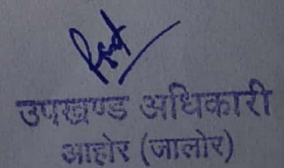 उपखण्ड अधिकारी
आहोर (जालोर)